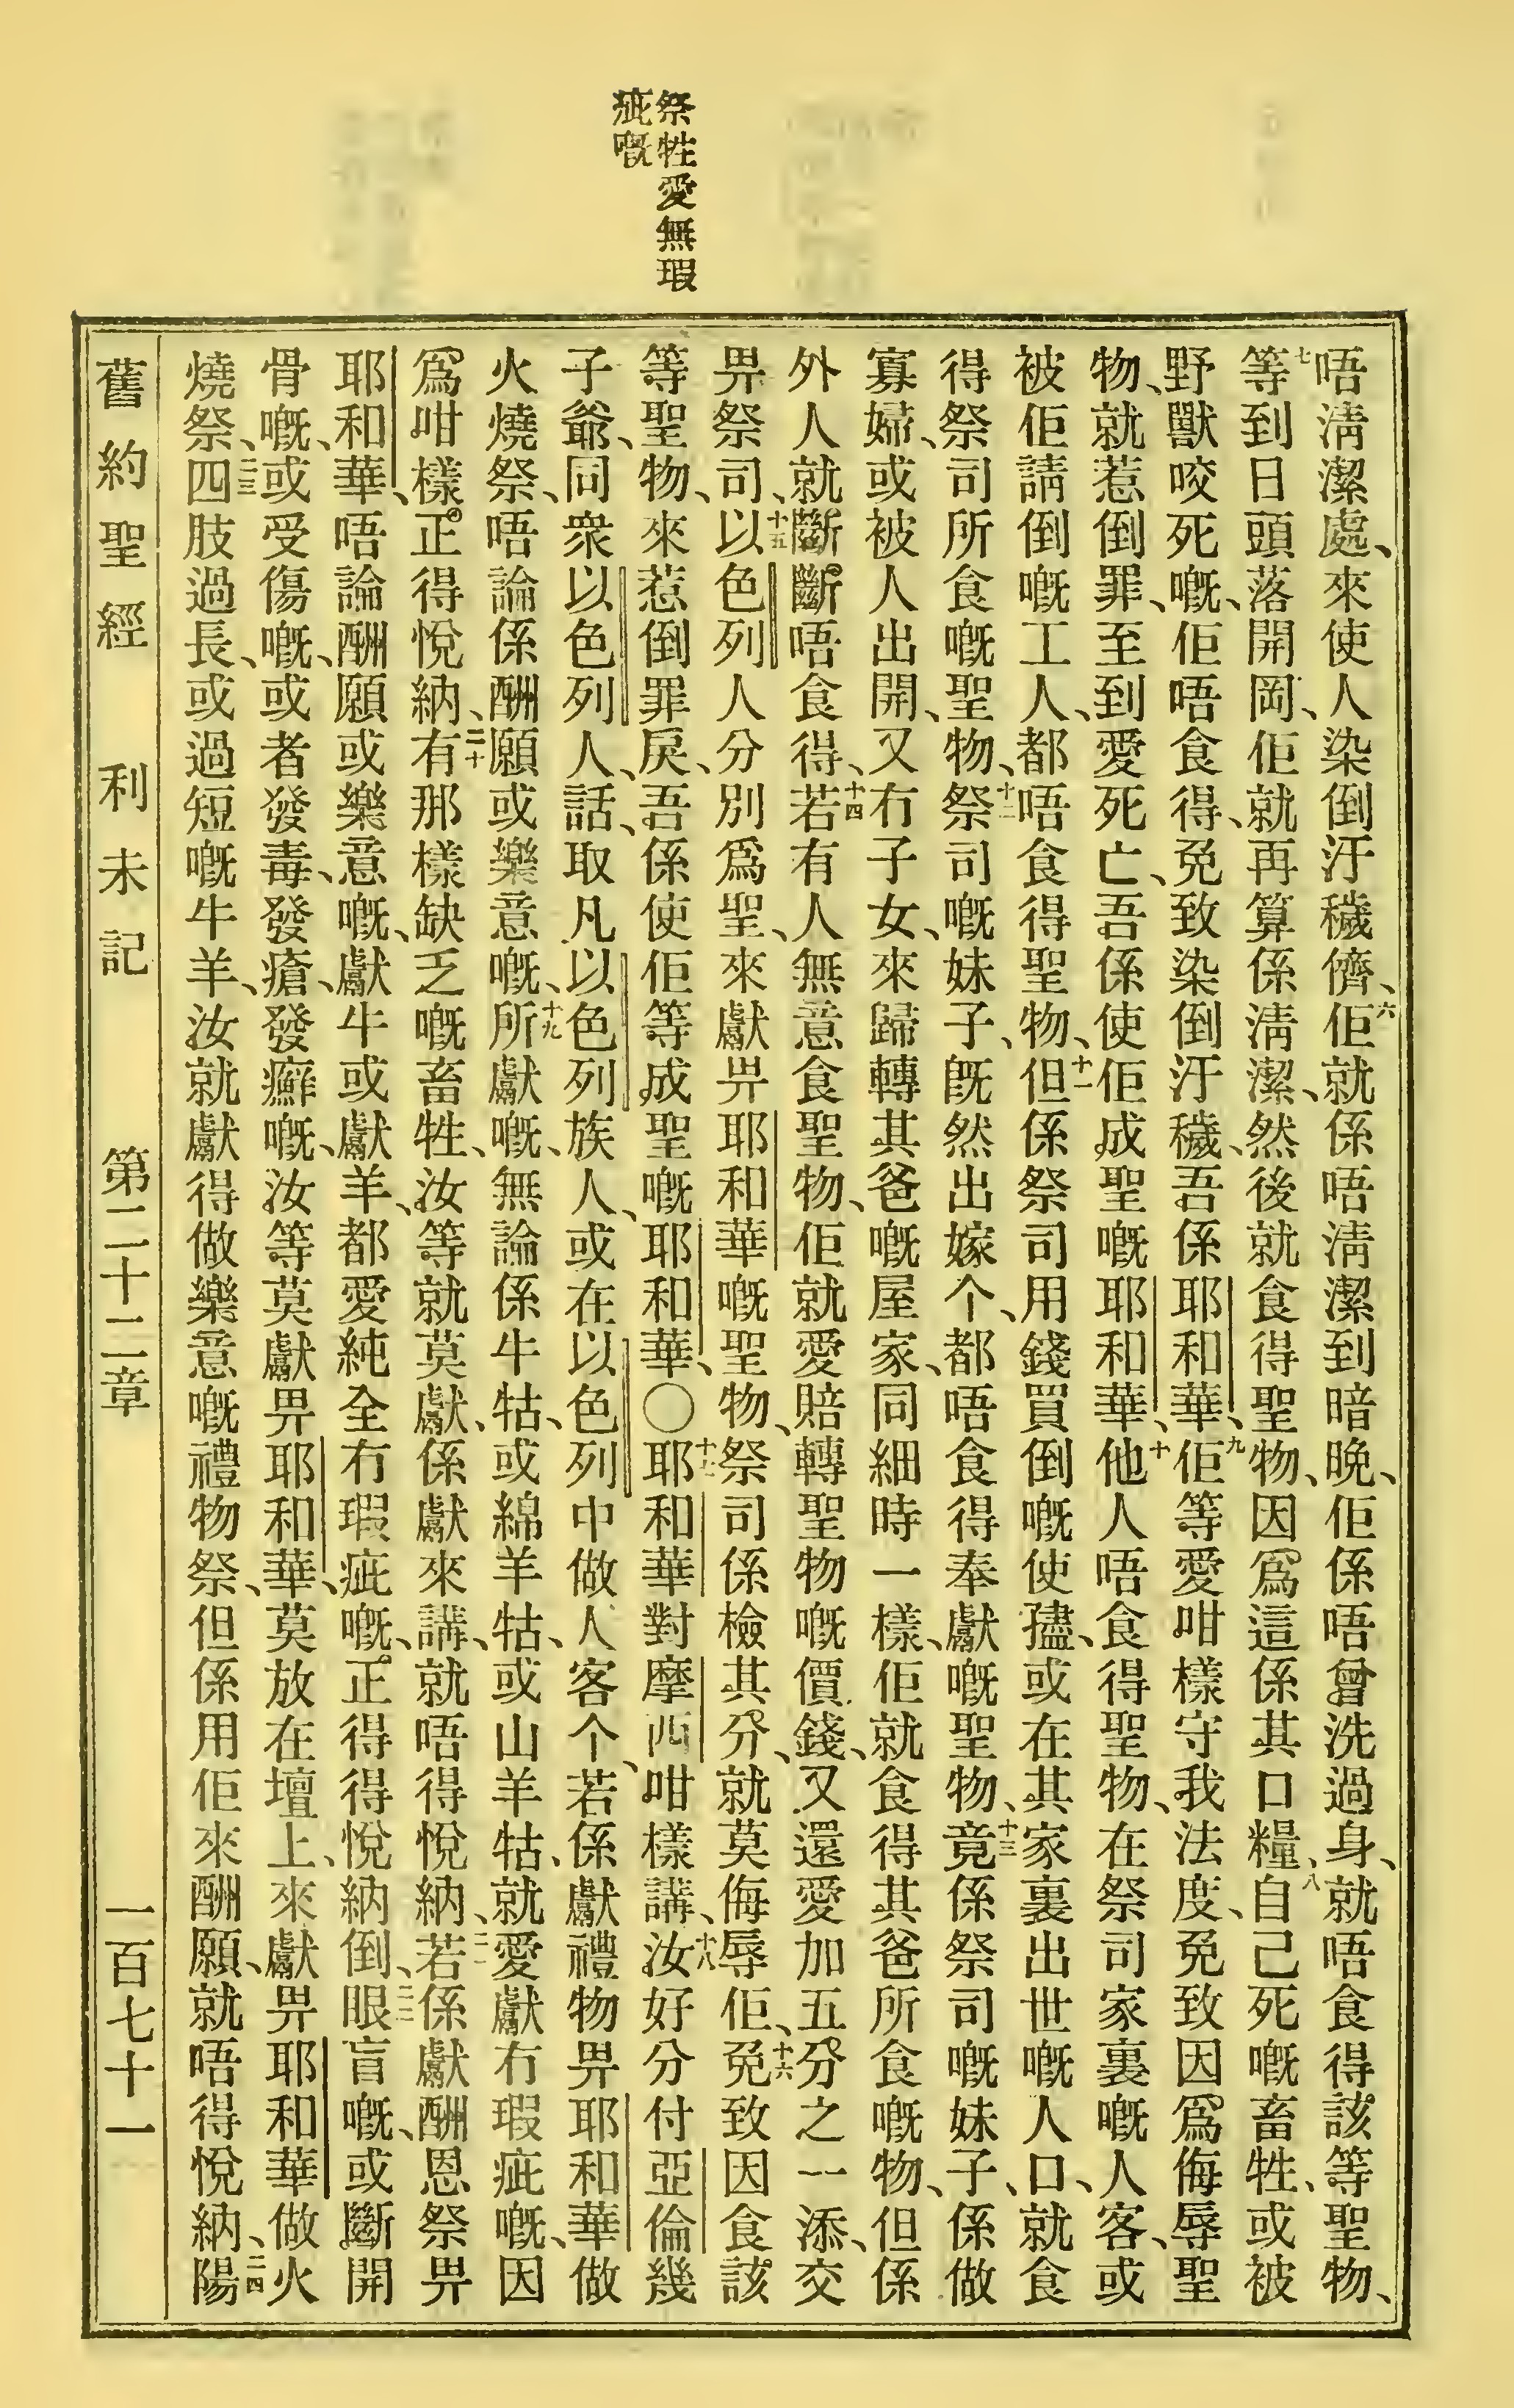 祭牲愛無瑕
疵嘅
唔淸潔處、來使人染倒汙穢儕、六佢就係唔淸潔到暗晚、佢係唔曾洗過身、就唔食得該等聖物、
七等到日頭落開岡、佢就再算係淸潔、然後就食得聖物、因爲這係其口糧、八自己死嘅畜牲、或被
野獸咬死嘅、佢唔食得、免致染倒汙穢、吾係耶和華、九佢等愛咁樣守我法度、免致因爲侮辱聖
物、就惹倒罪、至到愛死亡、吾係使佢成聖嘅耶和華、十他人唔食得聖物、在祭司家裏嘅人客、或
被佢請倒嘅工人、都唔食得聖物、十一但係祭司用錢買倒嘅使孻、或在其家裏出世嘅人口、就食
得祭司所食嘅聖物、十二祭司嘅妹子、旣然出嫁个、都唔食得奉獻嘅聖物、十三竟係祭司嘅妹子、係做
寡婦、或被人出開、又冇子女、來歸轉其爸嘅屋家、同細時一樣、佢就食得其爸所食嘅物、但係
外人就斷斷唔食得、十四若有人無意食聖物、佢就愛賠轉聖物嘅價錢、又還愛加五分之一添、交
畀祭司、十五以色列人分別爲聖、來獻畀耶和華嘅聖物、祭司係檢其分、就莫侮辱佢、十六免致因食該
等聖物、來惹倒罪戾、吾係使佢等成聖嘅耶和華、〇十七耶和華對摩西咁樣講、十八汝好分付亞倫幾
子爺、同衆以色列人、話、取凡以色列族人、或在以色列中做人客个、若係獻禮物畀耶和華做
火燒祭、唔論係酬願或樂意嘅、十九所獻嘅、無論係牛牯、或綿羊牯、或山羊牯、就愛獻冇瑕疵嘅、因
爲咁樣正得悅納、二十有那樣缺乏嘅畜牲、汝等就莫獻、係獻來講、就唔得悅納、二一若係獻酬恩祭畀
耶和華、唔論酬願或樂意嘅、獻牛或獻羊、都愛純全冇瑕疵嘅、正得得悅納倒、二二眼盲嘅、或斷開
骨嘅、或受傷嘅、或者發毒、發瘡、發癬嘅、汝等莫獻畀耶和華、莫放在壇上、來獻畀耶和華做火
燒祭、二三四肢過長、或過短嘅牛羊、汝就獻得做樂意嘅禮物祭、但係用佢來酬願、就唔得悅納、二四陽
舊約聖經　利未記　第二十二章　一百七十一